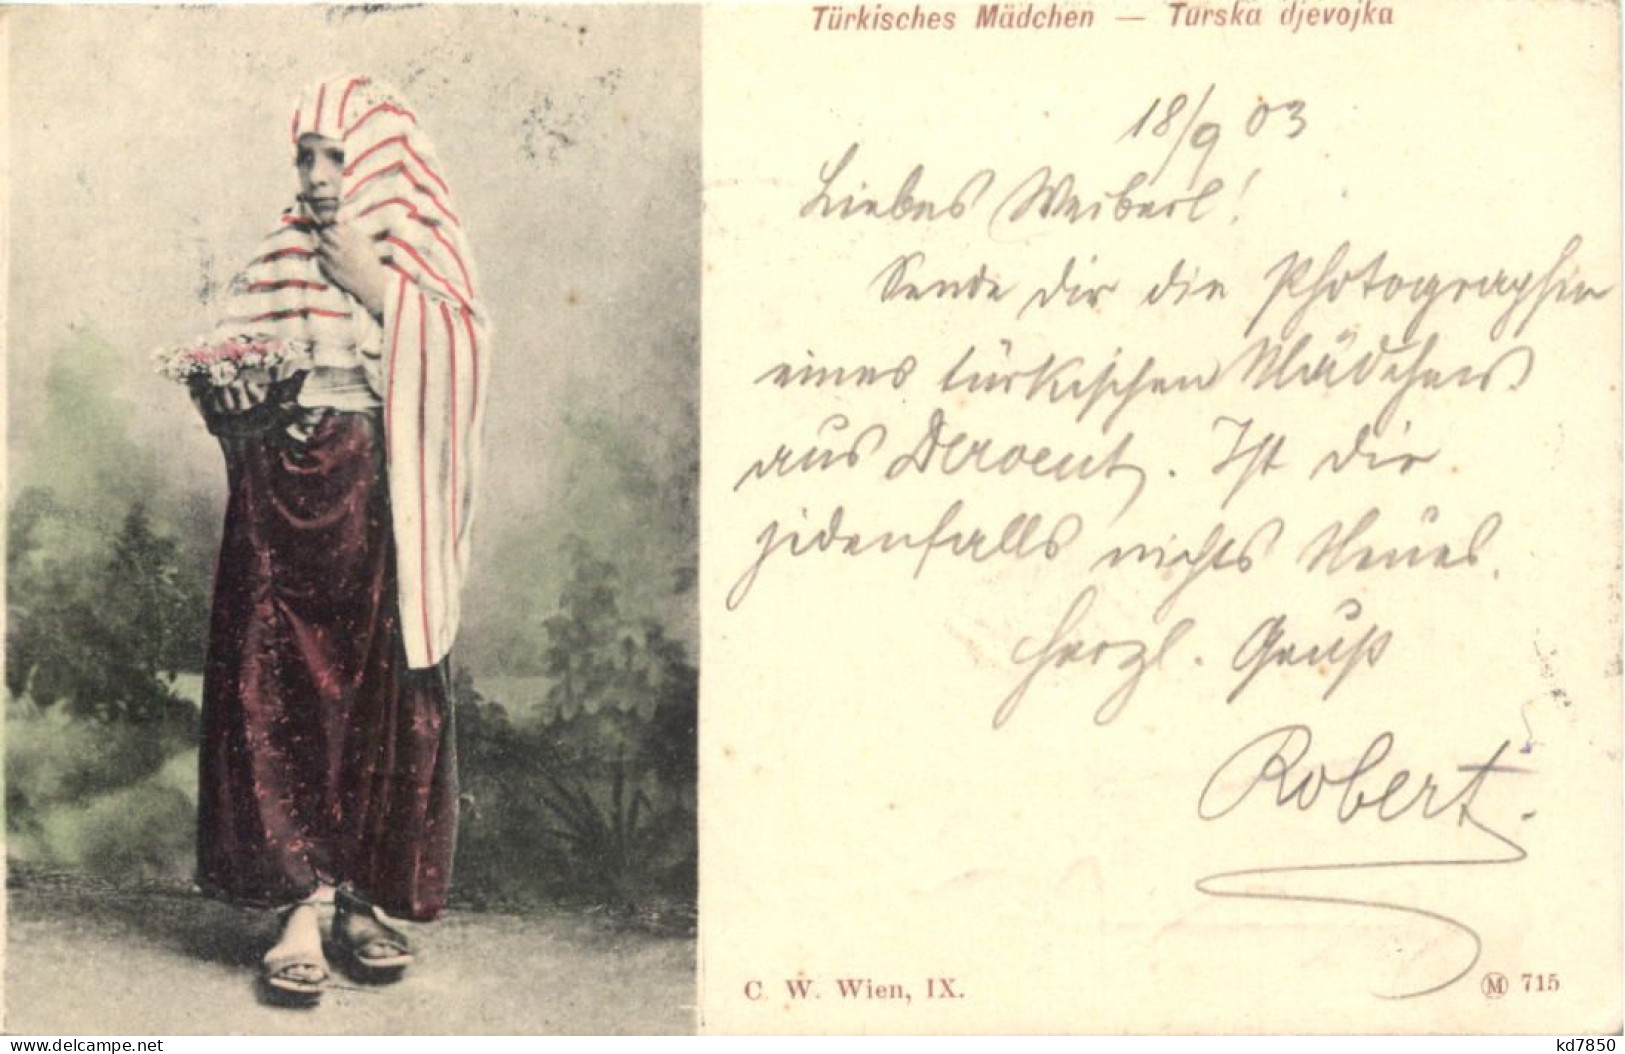 Türkisches Mädchen — Turska djevojka
18/9 03
Liebes Weiberl!
Sende dir die Photographie
eines türkischen Mädchens
aus Dervent. Ist dir
jedenfalls nichts Neues.
Herzl. Gruß
Robert.
C. W. Wien, IX.
M 715
www.delcampe.net
kd7850